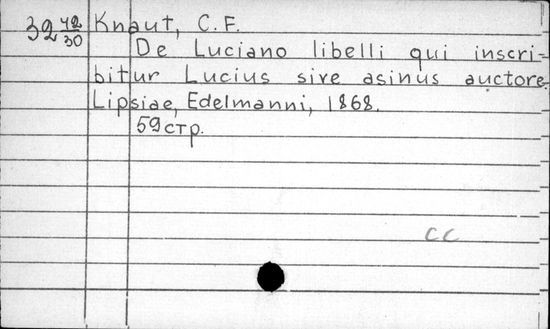 32 42/30 Knaut, C. F.
De Luciano libelli qui inscri-
bitur Lucius sive asinus auctore.
Lipsiae, Edelmanni, 1868.
59 стр.
CC